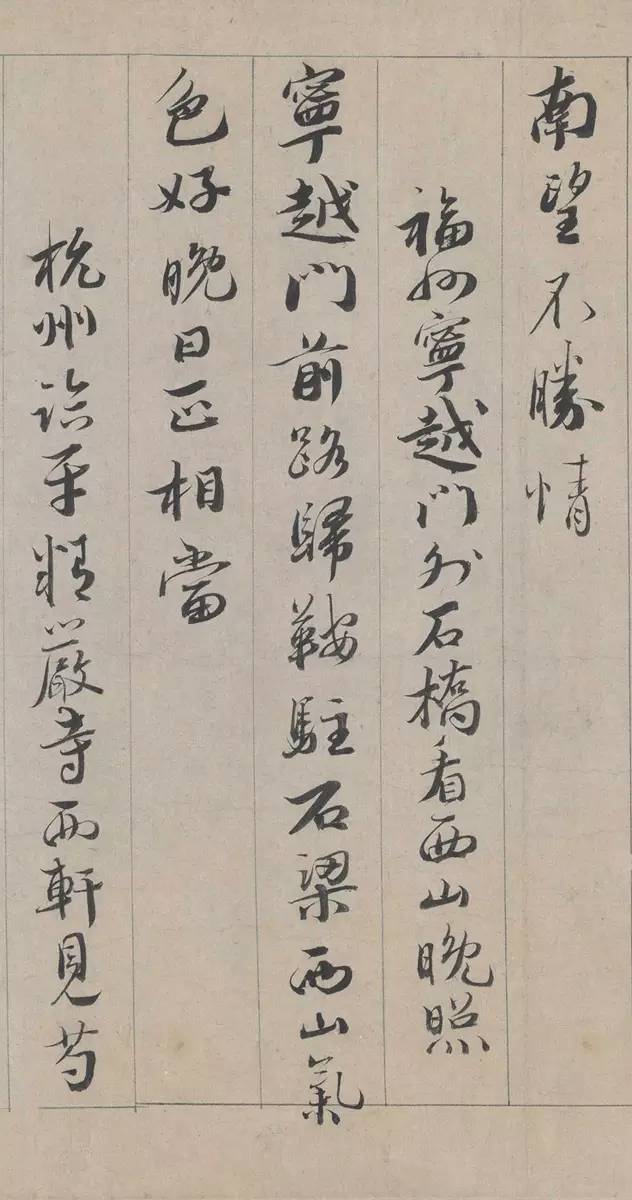 南望不勝情
福州寧越門外石橋看西山晚照
寧越門前路歸鞍駐石梁西山氣
色好晚日正相當
杭州臨平精嚴寺西軒見芍